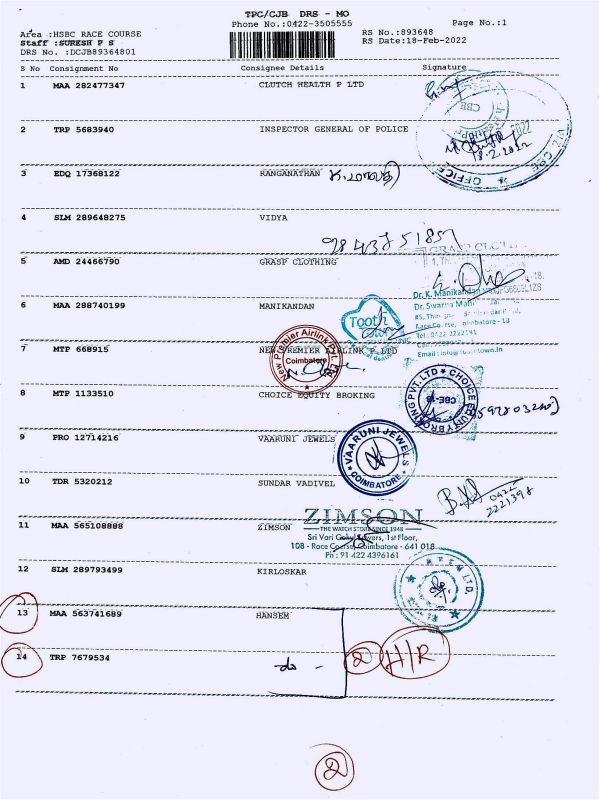 TPC/CJB DRS - MO
Phone No.:0422-3505555
Page No.:1
Area :HSBC RACE COURSE
RS No.:893648
Staff :SURESH P S
RS Date:18-Feb-2022
DRS No. :DCJB89364801
S No Consignment No Consignee Details Signature
1 MAA 282477347 CLUTCH HEALTH P LTD
2 TRP 5683940 INSPECTOR GENERAL OF POLICE
18.2.2022
3 EDQ 17368122 RANGANATHAN
4 SLM 289648275 VIDYA
9843751857
5 AMD 24466790 GRASP CLOTHING
GRASP CLOTH
6 MAA 288740199 MANIKANDAN
Tooth
Dr. K. Manikandan
Dr. Swarna
Race Course, Coimbatore - 18
Tel : 0422 2222191
7 MTP 668915 NEW PREMIER AIRLINK P LTD
New Premier Airlink Pvt. Ltd
Coimbatore
8 MTP 1133510 CHOICE EQUITY BROKING
CHOICE EQUITY BROKING PVT. LTD
CBE-18
9 PRO 12714216 VAARUNI JEWELS
VAARUNI JEWELS
COIMBATORE
10 TDR 5320212 SUNDAR VADIVEL
0422
2221398
11 MAA 565108888 ZIMSON
ZIMSON
THE WATCH STORE SINCE 1948
Sri Vari Gokul Towers, 1st Floor,
108 - Race Course, Coimbatore - 641 018
Ph : 91 422 4396161
12 SLM 289793499 KIRLOSKAR
13 MAA 563741689 HANSEM
14 TRP 7679534 -do- 2 H/R
2